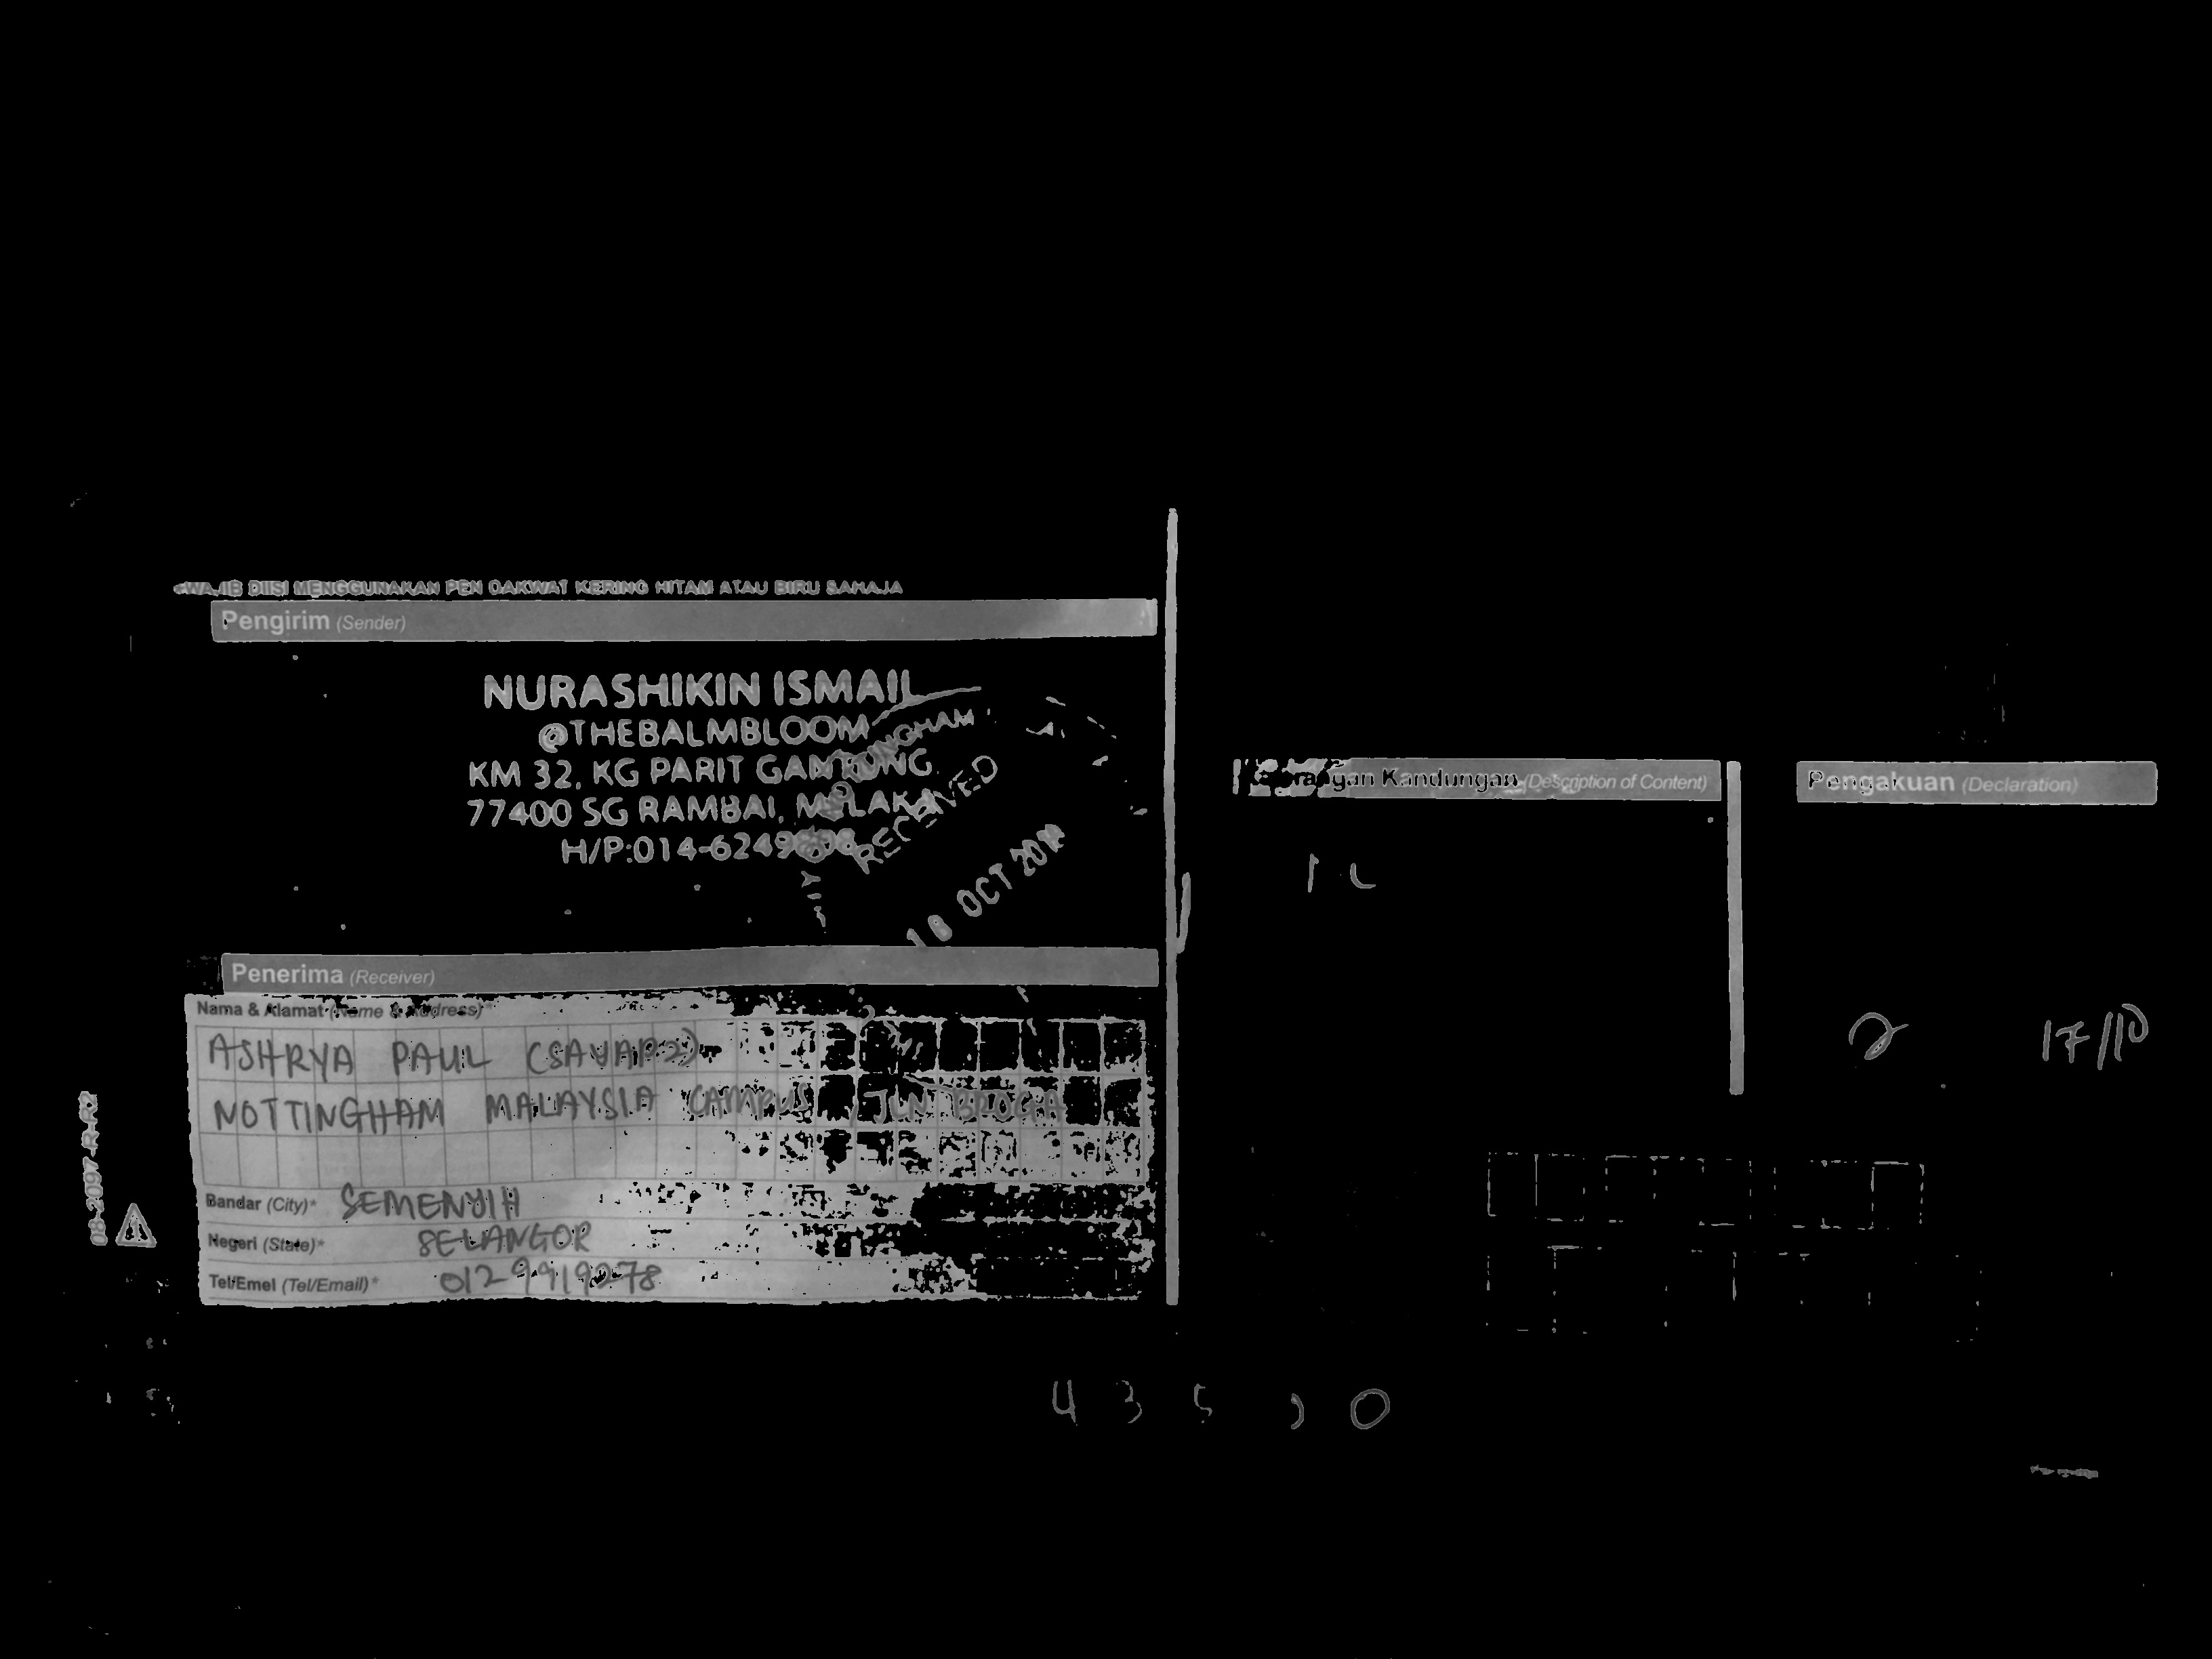 *WAJIB DIISI MENGGUNAKAN PEN DAKWAT KERING HITAM ATAU BIRU SAHAJA
Pengirim (Sender)
NURASHIKIN ISMAIL
@THEBALMBLOOM
KM 32, KG PARIT GANTUNG
77400 SG RAMBAI, MELAKA
H/P:014-6249808
RECEIVED
18 OCT
Penerima (Receiver)
Nama & Alamat (Name & Address)
ASHRYA PAUL
NOTTINGHAM MALAYSIA CAMPUS JLN BROGA
Bandar (City)* SEMENYIH
Negeri (State)* SELANGOR
Tel/Emel (Tel/Email)* 0129919278
08-2097-R-R2
Kandungan (Description of Content)
Pengakuan (Declaration)
17/10
4 3 5 0